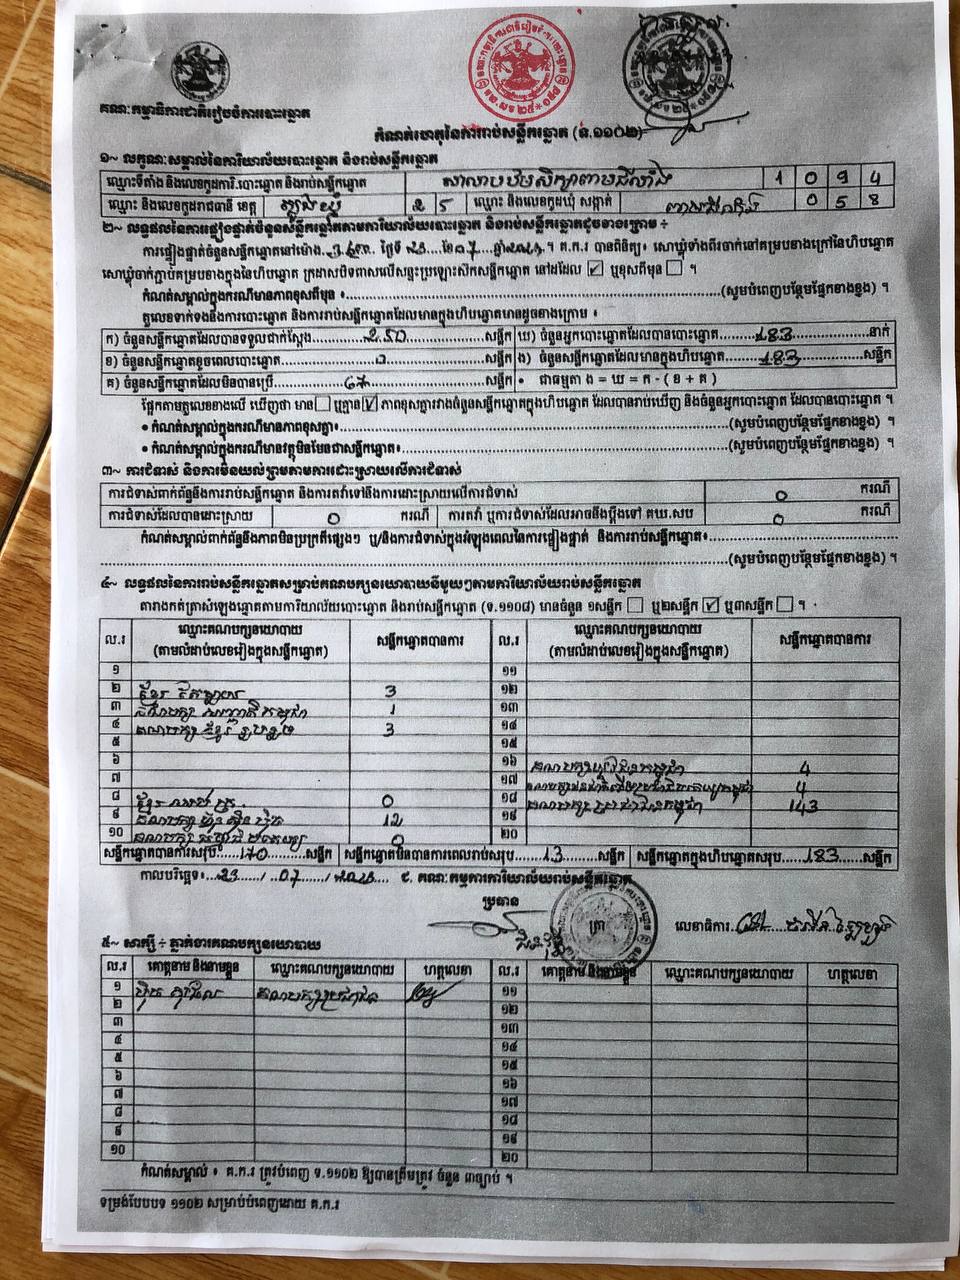 គណៈកម្មាធិការជាតិរៀបចំការបោះឆ្នោត
កំណត់ហេតុនៃការរាប់សន្លឹកឆ្នោត (ទ.១១០២)
១~ លក្ខណៈសម្គាល់នៃការិយាល័យបោះឆ្នោត និងរាប់សន្លឹកឆ្នោត
ឈ្មោះទីតាំង និងលេខកូដការិ.បោះឆ្នោត និងរាប់សន្លឹកឆ្នោត 1 0 9 4
ឈ្មោះ និងលេខកូដរាជធានី ខេត្ត ត្បូងឃ្មុំ 2 5 ឈ្មោះ និងលេខកូដឃុំ សង្កាត់ 0 5 8
២~ លទ្ធផលនៃការផ្ទៀងផ្ទាត់ចំនួនសន្លឹកឆ្នោតតាមការិយាល័យបោះឆ្នោត និងរាប់សន្លឹកឆ្នោតដូចខាងក្រោម ÷
ការផ្ទៀងផ្ទាត់សន្លឹកឆ្នោតនៅម៉ោង ថ្ងៃទី 23 ខែ 07 ឆ្នាំ 2023 ។ គ.ក.រ បានពិនិត្យ៖ សោឃ្លុំទាំងពីរចាក់នៅគម្របខាងក្រៅនៃហិបឆ្នោត
សោឃ្លុំចាក់ភ្ជាប់គម្របខាងក្នុងនៃហិបឆ្នោត ក្រដាសបិទពាសលើសន្ទះប្រឡោះសិកសន្លឹកឆ្នោត នៅដដែល ☑ ឬខុសពីមុន ☐ ។
កំណត់សម្គាល់ក្នុងករណីមានភាពខុសពីមុន ៖ (សូមបំពេញបន្ថែមផ្នែកខាងខ្នង) ។
តួលេខទាក់ទងនឹងការបោះឆ្នោត និងការរាប់សន្លឹកឆ្នោតដែលមានក្នុងហិបឆ្នោតមានដូចខាងក្រោម ៖
ក) ចំនួនសន្លឹកឆ្នោតដែលបានទទួលជាក់ស្តែង 250 សន្លឹក ឃ) ចំនួនអ្នកបោះឆ្នោតដែលបានបោះឆ្នោត 183 នាក់
ខ) ចំនួនសន្លឹកឆ្នោតខូចពេលបោះឆ្នោត 0 សន្លឹក ង) ចំនួនសន្លឹកឆ្នោតដែលមានក្នុងហិបឆ្នោត 183 សន្លឹក
គ) ចំនួនសន្លឹកឆ្នោតដែលមិនបានប្រើ 67 សន្លឹក • ជាធម្មតា ង = ឃ = ក - ( ខ + គ )
ផ្អែកតាមតួលេខខាងលើ ឃើញថា មាន ☐ ឬគ្មាន ☑ ភាពខុសគ្នារវាងចំនួនសន្លឹកឆ្នោតក្នុងហិបឆ្នោត ដែលបានរាប់ឃើញ និងចំនួនអ្នកបោះឆ្នោត ដែលបានបោះឆ្នោត ។
• កំណត់សម្គាល់ក្នុងករណីមានភាពខុសគ្នា៖ (សូមបំពេញបន្ថែមផ្នែកខាងខ្នង) ។
• កំណត់សម្គាល់ក្នុងករណីមានវត្ថុមិនមែនជាសន្លឹកឆ្នោត៖ (សូមបំពេញបន្ថែមផ្នែកខាងខ្នង) ។
៣~ ការជំទាស់ និងការមិនយល់ព្រមតាមការដោះស្រាយលើការជំទាស់
ការជំទាស់ពាក់ព័ន្ធនឹងការរាប់សន្លឹកឆ្នោត និងការតវ៉ាទៅនឹងការដោះស្រាយលើការជំទាស់ 0 ករណី
ការជំទាស់ដែលបានដោះស្រាយ 0 ករណី ការតវ៉ា ឬការជំទាស់ដែលអាចនឹងប្តឹងទៅ គឃ.សប 0 ករណី
កំណត់សម្គាល់ពាក់ព័ន្ធនឹងភាពមិនប្រក្រតីផ្សេងៗ ឬ/និងការជំទាស់ក្នុងអំឡុងពេលនៃការផ្ទៀងផ្ទាត់ និងការរាប់សន្លឹកឆ្នោត៖
(សូមបំពេញបន្ថែមផ្នែកខាងខ្នង) ។
៤~ លទ្ធផលនៃការរាប់សន្លឹកឆ្នោតសម្រាប់គណបក្សនយោបាយនីមួយៗតាមការិយាល័យរាប់សន្លឹកឆ្នោត
តារាងកត់ត្រាសំឡេងឆ្នោតតាមការិយាល័យបោះឆ្នោត និងរាប់សន្លឹកឆ្នោត (ទ.១១០៨) មានចំនួន ១សន្លឹក ☐ ឬ២សន្លឹក ☑ ឬ៣សន្លឹក ☐ ។
ល.រ ឈ្មោះគណបក្សនយោបាយ (តាមលំដាប់លេខរៀងក្នុងសន្លឹកឆ្នោត) សន្លឹកឆ្នោតបានការ ល.រ ឈ្មោះគណបក្សនយោបាយ (តាមលំដាប់លេខរៀងក្នុងសន្លឹកឆ្នោត) សន្លឹកឆ្នោតបានការ
១ ១១
២ 3 ១២
៣ 1 ១៣
៤ គណបក្ស ខ្មែរ 3 ១៤
៥ ១៥
៦ ១៦ 4
៧ ១៧ 4
៨ ខ្មែរ 0 ១៨ គណបក្ស ប្រជាជនកម្ពុជា 143
៩ គណបក្ស ហ៊្វុនស៊ិនប៉ិច 12 ១៩
១០ គណបក្ស 0 ២០
សន្លឹកឆ្នោតបានការសរុប 170 សន្លឹក សន្លឹកឆ្នោតមិនបានការពេលរាប់សរុប 13 សន្លឹក សន្លឹកឆ្នោតក្នុងហិបឆ្នោតសរុប 183 សន្លឹក
កាលបរិច្ឆេទ៖ 23 / 07 / 2023 ៩. គណៈកម្មការការិយាល័យរាប់សន្លឹកឆ្នោត
ប្រធាន
លេខាធិការ
៥~ សាក្សី ÷ ភ្នាក់ងារគណបក្សនយោបាយ
ល.រ គោត្តនាម និងនាមខ្លួន ឈ្មោះគណបក្សនយោបាយ ហត្ថលេខា ល.រ គោត្តនាម និងនាមខ្លួន ឈ្មោះគណបក្សនយោបាយ ហត្ថលេខា
១ គណបក្សប្រជាជន ១១
២ ១២
៣ ១៣
៤ ១៤
៥ ១៥
៦ ១៦
៧ ១៧
៨ ១៨
៩ ១៩
១០ ២០
កំណត់សម្គាល់ ៖ គ.ក.រ ត្រូវបំពេញ ទ.១១០២ ឱ្យបានត្រឹមត្រូវ ចំនួន ៣ច្បាប់ ។
ទម្រង់បែបបទ ១១០២ សម្រាប់បំពេញដោយ គ.ក.រ